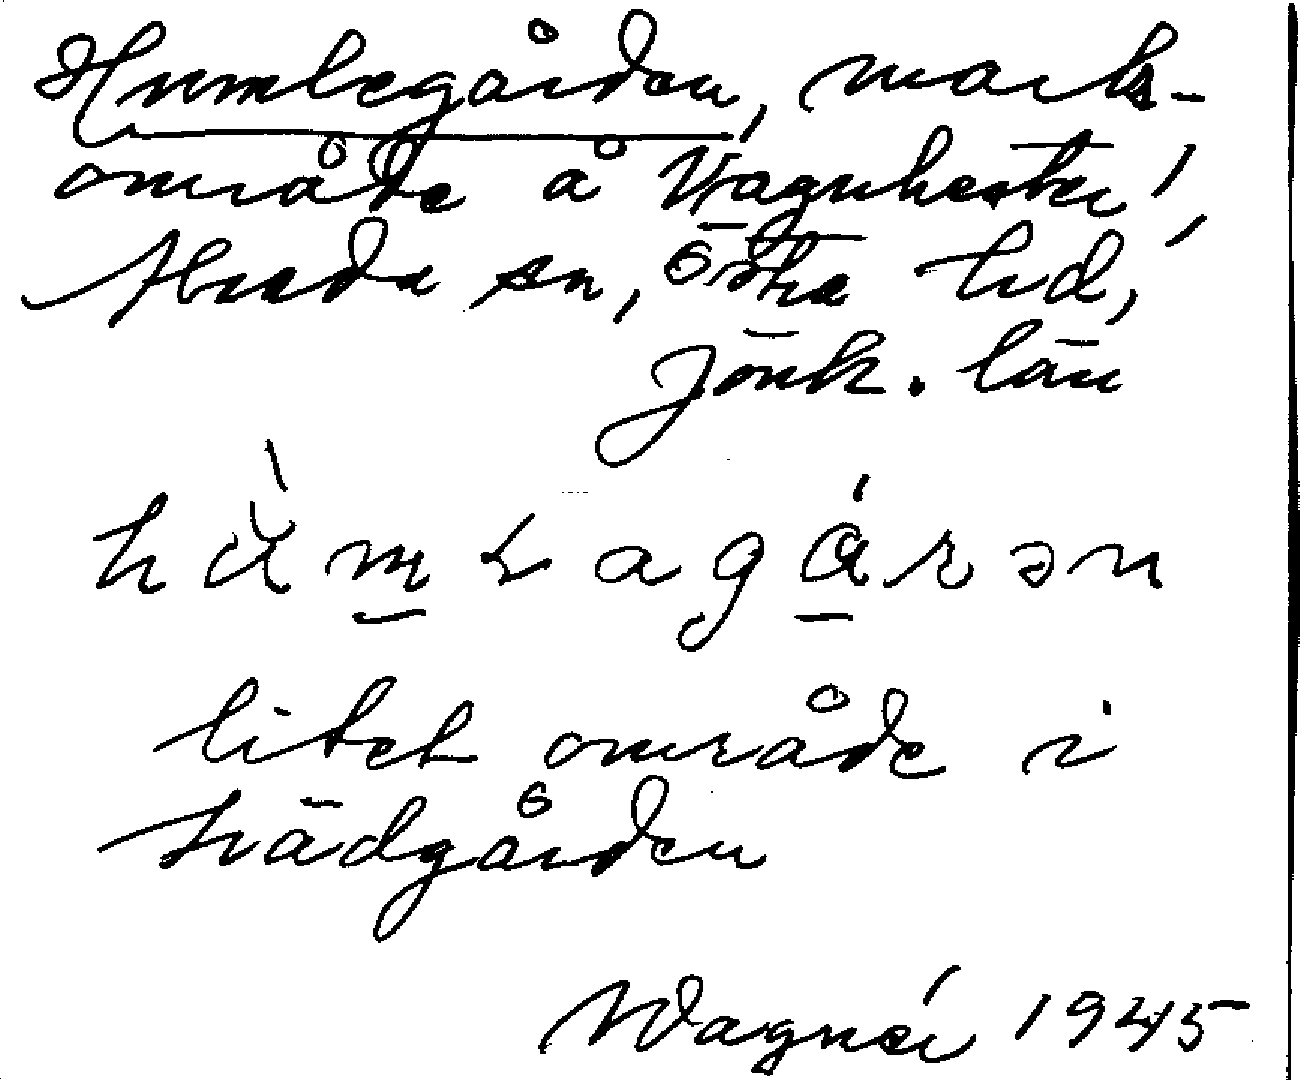 Humlegården, mark-
område å Vagnhester,
Åbreda sn, Östra hd,
Jönk. län
litet område i
trädgården
Wagnér 1945